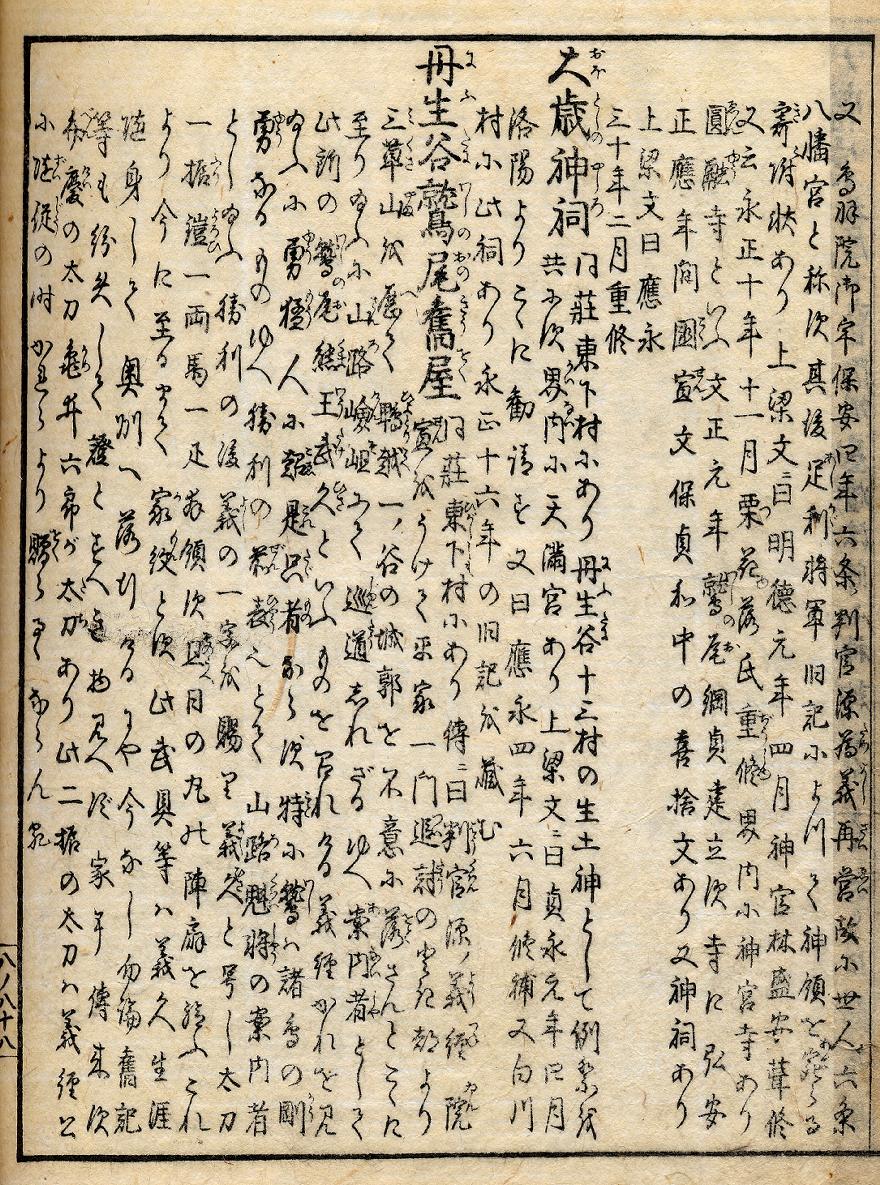 又鳥羽院御宇保安四年六条判官源為義再営故に世人六条
八幡宮と称す其後足利将軍旧記によつて神領を寄らる
寄附状あり上梁文ニ曰明徳元年四月神官林盛安葺修
又云永正十年十一月栗花落氏重修界内に神宮寺あり
圓融寺といふ文正元年鷲尾綱貞建立す寺に弘安
正應年間國宣文保貞和中の喜捨文あり又神祠あり
上梁文曰應永
三十年二月重修
大歳神祠 同荘東下村にあり丹生谷十三村の生土神として例祭を
共にす界内に天満宮あり上梁文ニ曰貞永元年四月
洛陽よりこゝに勧請す又曰應永四年六月修補又白川
村に此祠あり永正十六年の旧記を蔵む
丹生谷鷲尾舊屋 同荘東下村にあり傳ニ曰判官源ノ義經院
宣をうけて平家一門追討のとき都より
三草山を歴て鵯越一ノ谷の城郭を不意に落さんとこゝに
至り給ふに山路嶮岨にて巡道しれざるゆへ案内者として
此所の鷲尾熊王武久といふものを召れける義經かれを見
給ふに勇猛人に超是只者ならず特に鷲ハ諸鳥の剛
勇なるものゆへ勝利の表なりとて山路魁将の案内者
とし給ふ勝利の後義の一字を賜り義久と号し太刀
一振鎧一両馬一疋拝領す且日の丸の陣扇を給ふこれ
より今に至るまで家紋とす此武具等ハ義久生涯
随身して奥州へ落行けるにや今なし勿論舊記
等も紛失して證とすべき物見へず家に傳来す
弁慶の太刀亀井六郎が太刀あり此二振の太刀ハ義經公
に随従の時かれらより贈らるゝならん歟
八ノ八十八